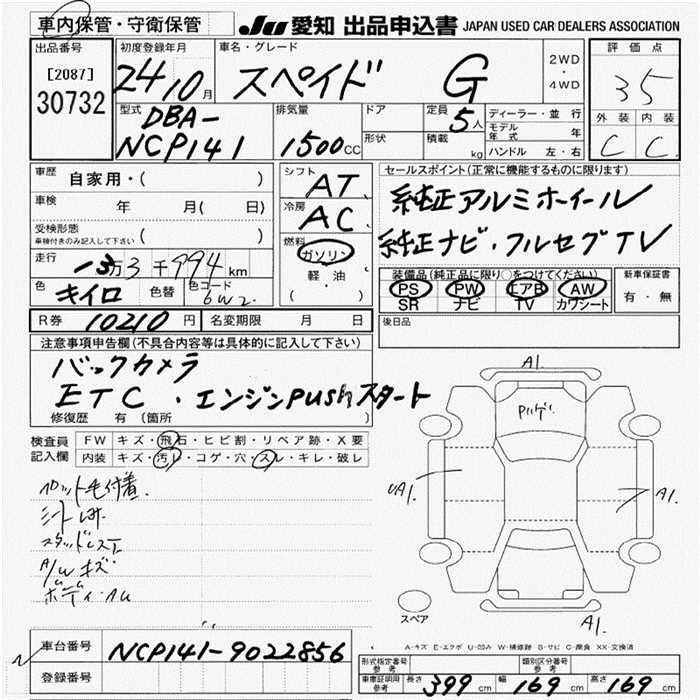 車内保管・守衛保管
JU 愛知 出品申込書 JAPAN USED CAR DEALERS ASSOCIATION
出品番号
[2087]
30732
初度登録年月
24 10月
車名・グレード
スペイド G
2WD
・
4WD
評価点
35
外装 内装
C C
型式
DBA-
NCP141
排気量
1500CC
ドア
形状
定員 5人
積載 kg
ディーラー・並行
モデル年式 年
ハンドル 左・右
車歴 自家用・( )
車検 年 月( 日)
受検形態
車検付きのみ記入して下さい ( )
走行 13万3千994km
色 キイロ 色替 色コード 6W2
シフト AT
冷房 AC
燃料
ガソリン
軽・油
( )
セールスポイント(正常に機能するものに限ります)
純正アルミホイール
純正ナビ・フルセグTV
装備品(純正品に限り○をつけてください)
PS PW エアB AW
SR ナビ TV カワシート
新車保証書
有・無
R券 10210円 名変期限 月 日
後日品
注意事項申告欄(不具合内容等は具体的に記入して下さい)
バックカメラ
ETC・エンジンpushスタート
修復歴 有 (箇所 )
検査員
記入欄
FW キズ・飛石・ヒビ割・リペア跡・X要
内装 キズ・汚レ・コゲ・穴・スレ・キレ・破レ
毛付着
A/W キズ
A1.
A1.
A1.
スペア
A1.
A-キズ E-エクボ U-凹み W-補修跡 S-サビ C-腐食 XX-交換済
車台番号 NCP141-9022856
登録番号
形式指定番号
参考
類別区分番号
参考
車庫証明用
参考
長さ 399cm 幅 169cm 高さ 169cm